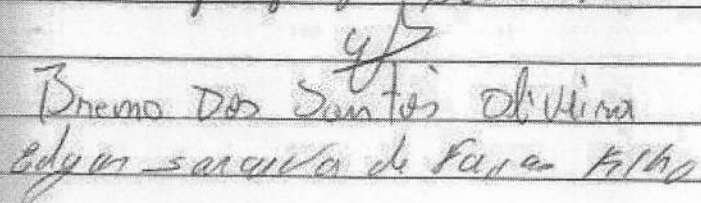 Bremo Dos Santos Oliveira
edgar saraiva de Farias Filho